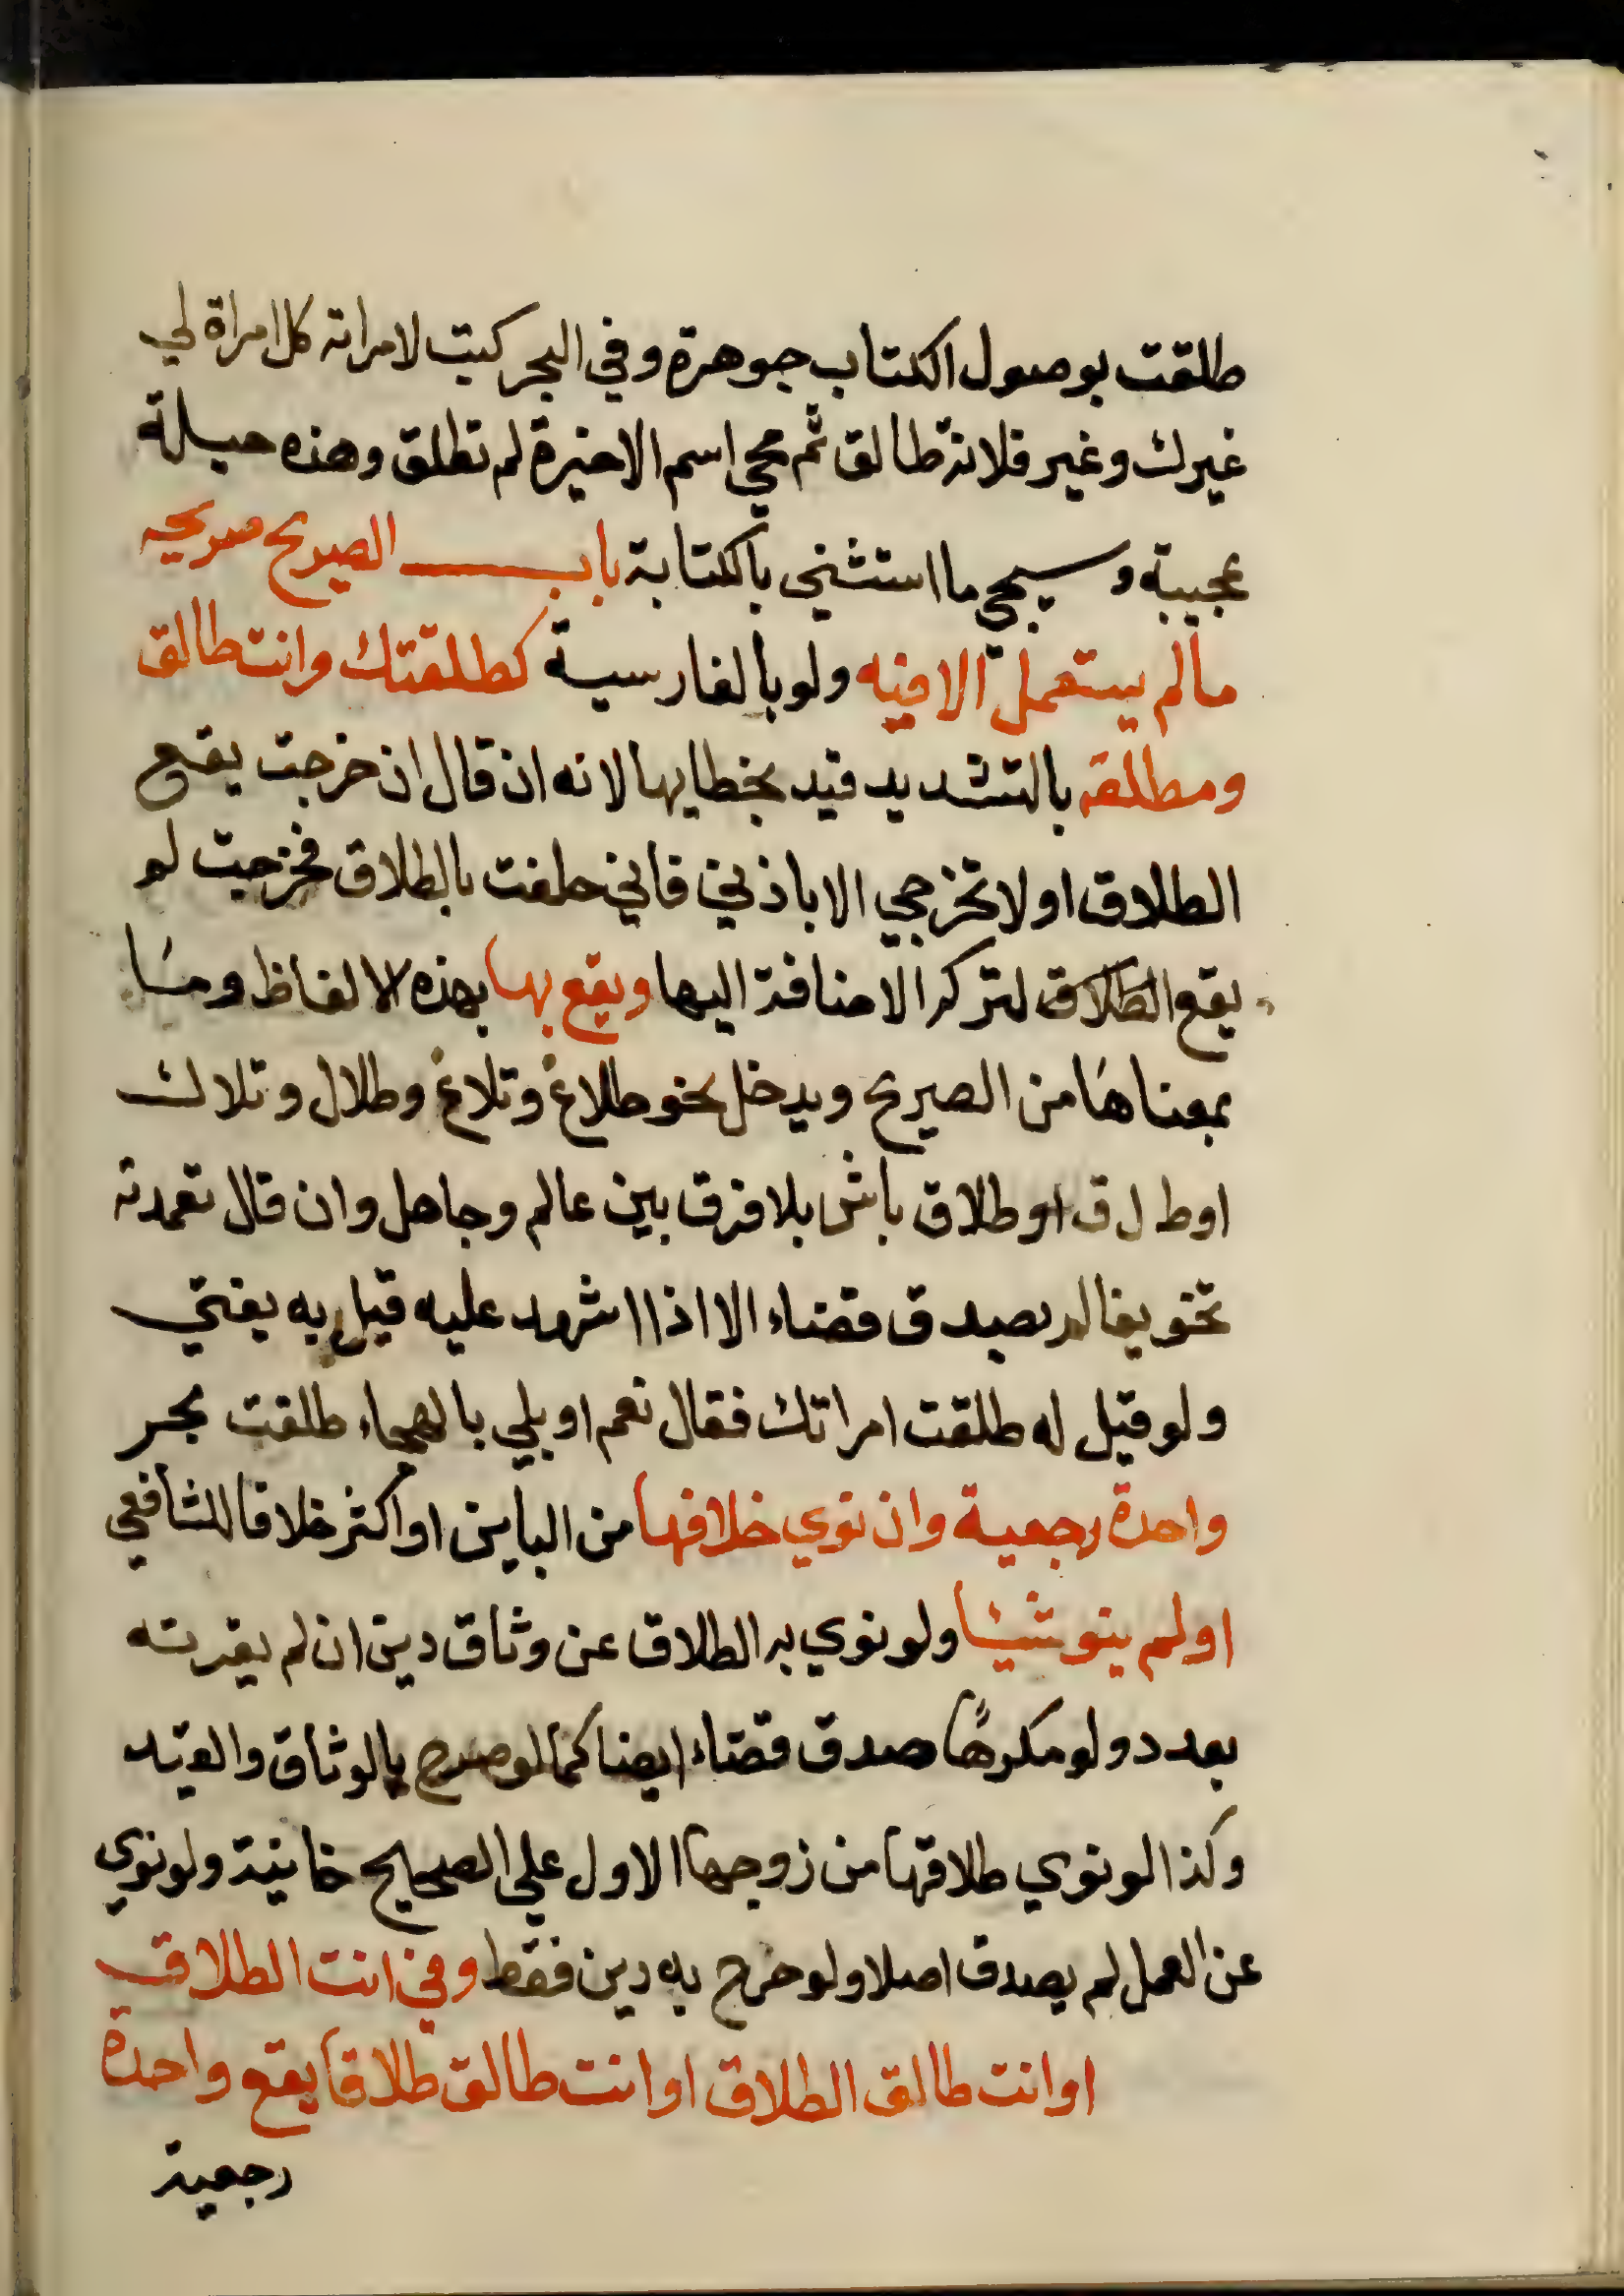 طلقت بوصول الكتاب جوهرة وفي البحر كتب لامراته كل امراة لي
غيرك وغير فلانة طالق ثم محي اسم الاخيرة لم تطلق وهذه حيلة
عجيبة وسيجي ما استثني بالكتابة باب الصريح صريحه
مالم يستعمل الا فيه ولو بالفارسية كطلقتك وانت طالق
ومطلقه بالتشديد قيد بخطابها لانه ان قال ان خرجت يقع
الطلاق او لا تخرجي الا باذني فاني حلفت بالطلاق فخرجت لم
يقع الطلاق لتركه الاضافة اليها ويقع بها بهذه الالفاظ وما
بمعناها من الصريح ويدخل نحو طلاغ وتلاغ وطلاك وتلاك
او ط ل ق او طلاق باش بلا فرق بين عالم وجاهل وان قال تعمدته
تخويفا لم يصدق قضاء الا اذا اشهد عليه قبل به يفتي
ولو قيل له طلقت امراتك فقال نعم او بلي بالهجاء طلقت بحر
واحدة رجعية وان نوي خلافها من الباين او اكثر خلافا للشافعي
او لم ينو شيئا ولو نوي به الطلاق عن وثاق دين ان لم يقرنه
بعدد ولو مكرها صدق قضاء ايضا كما لو صرح بالوثاق والقيد
وكذا لو نوي طلاقها من زوجها الاول علي الصحيح خانية ولو نوي
عن العمل لم يصدق اصلا ولو صرح به دين فقط وفي انت الطلاق
او انت طالق الطلاق او انت طالق طلاقا يقع واحدة
رجعية